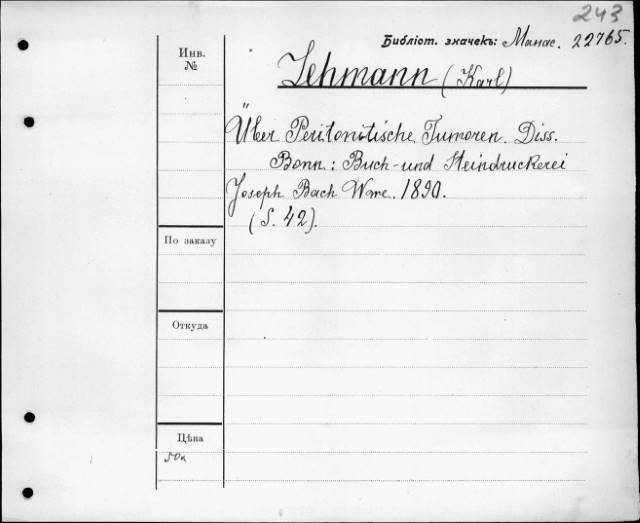 243
Библіот. значекъ: Манас. 22765.
Инв.
№
Lehmann (Karl)
Über Peritonitische Tumoren. Diss.
Bonn: Buch- und Steindruckerei
Joseph Bach Wwe. 1890.
(S. 42).
По заказу
Откуда
Цѣна
50к